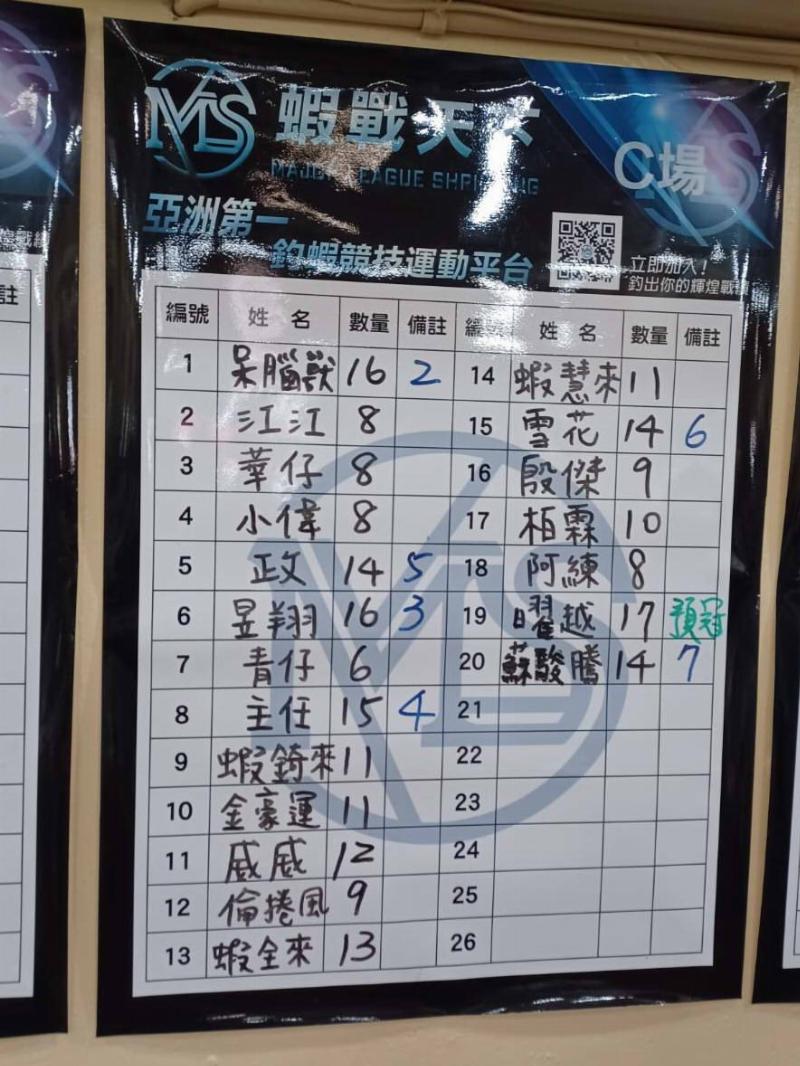 MS 蝦戰天下
MAJOR LEAGUE SHRIMPING
C場
亞洲第一
釣蝦競技運動平台
立即加入!
釣出你的輝煌戰
編號 姓名 數量 備註 編號 姓名 數量 備註
1 呆腦獸 16 2 14 蝦慧來 11
2 江江 8 15 雪花 14 6
3 華仔 8 16 殷傑 9
4 小偉 8 17 柏霖 10
5 政文 14 5 18 阿練 8
6 昱翔 16 3 19 曜越 17 預冠
7 青仔 6 20 蘇駿騰 14 7
8 主任 15 4 21
9 蝦錡來 11 22
10 金豪運 11 23
11 威威 12 24
12 倫捲風 9 25
13 蝦全來 13 26
註